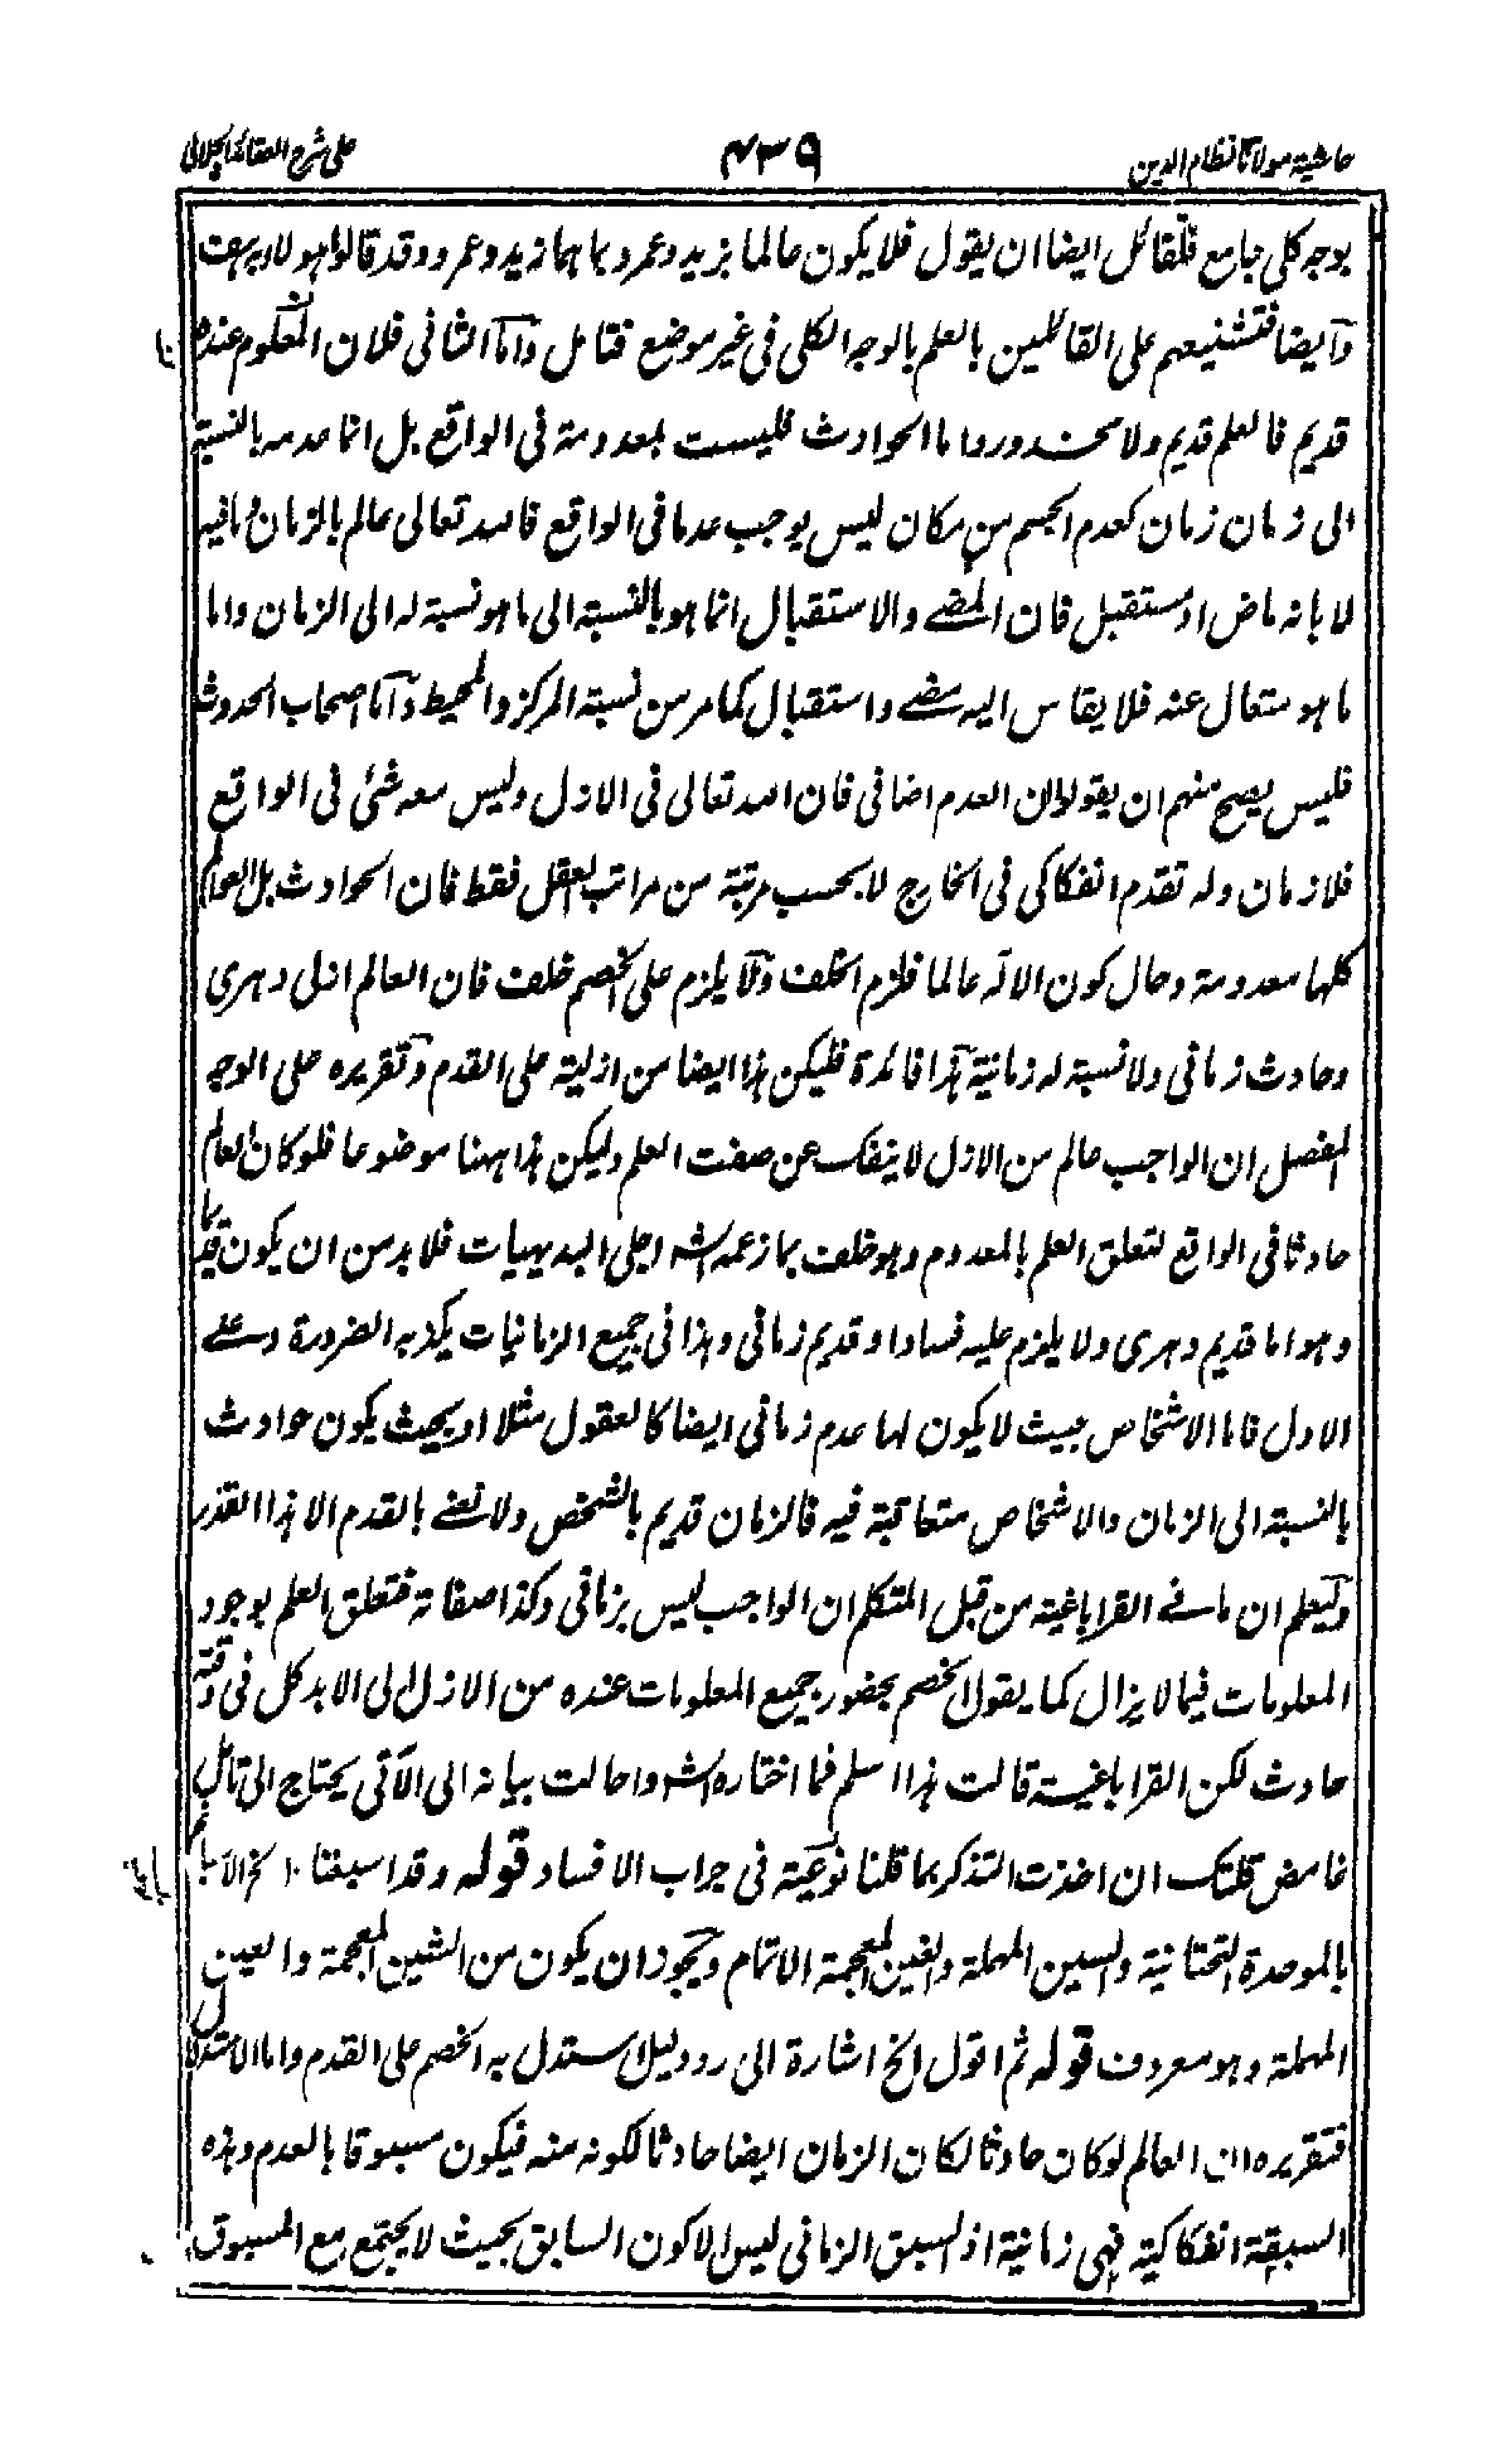 حاشية مولانا نظام الدين
۴۳۹
على شرح العقائد الجلالى
بوجه كلى جامع فلقائل ايضا ان يقول فلا يكون عالما بزيد وعمرو بما هما زيد وعمرو وقد قالوا هو لا
وايضا فتشنيعهم على القائلين بالعلم بالوجه الكلى فى غير موضع فتامل واما الثانى فلان المعلوم عنده
قديم فالعلم قديم ولا محذور واما الحوادث فليست بمعدومة فى الواقع بل انما عدمه بالنسبة
الى زمان زمان كعدم الجسم من مكان ليس يوجب عدما فى الواقع فالله تعالى عالم بالزمان وما فيه
لا بانه ماض او مستقبل فان المضے والاستقبال انما هو بالنسبة الى ما هو نسبة له الى الزمان واما
ما هو متعال عنه فلا يقاس اليه مضے واستقبال كما مر من نسبة المركز والمحيط واما اصحاب الحدوث
فليس يصح منهم ان يقولوا ان العدم اضافى فان الله تعالى فى الازل وليس معه شئ فى الواقع
فلا زمان وله تقدم انفكاكى فى الخارج لا بحسب مرتبة من مراتب العقل فقط فان الحوادث بل العوالم
كلها معدومة وحال كون الاله عالما فلزم الخلف ولا يلزم على الخصم خلف فان العالم ازلى دهرى
وحادث زمانى ولا نسبة له زمانية هذا فائدة فليكن هذا ايضا من ازلية على القدم وتقريره على الوجه
المفصل ان الواجب عالم من الازل لا ينفك عن صفت العلم وليكن هذا ههنا موضوعا فلو كان العالم
حادثا فى الواقع لتعلق العلم بالمعدوم وهو خلف بما زعمه الش اجلى البديهيات فلا بد من ان يكون قديما
وهو اما قديم دهرى ولا يلزم عليه فسادا و قديم زمانى وهذا فى جميع الزمانيات يكذبه الضرورة وعلے
الاول فاما الاشخاص بحيث لا يكون لها عدم زمانى ايضا كالعقول مثلا او بحيث يكون حوادث
بالنسبة الى الزمان والاشخاص متعاقبة فيه فالزمان قديم بالشخص ولا نعنے بالقدم الا هذا القدر
وليعلم ان ما فے القراباغية من قبل المتكلم ان الواجب ليس بزمانى وكذا صفاته فتعلق العلم بوجود
المعلومات فيما لا يزال كما يقول الخصم بحضور جميع المعلومات عنده من الازل الى الابد كل فى وقته
حادث لكن القراباغية قالت هذا اسلم فما اختاره الش واحالت بيانه الى الآتى يحتاج الى تامل
غامض قلتك ان اخذت التذكر بما قلنا نوعية فى جراب الافساد قوله وقد اسبغنا الخ الاسباغ
بالموحدة التحتانية والسين المهملة والغين المعجمة الاتمام ويجوز ان يكون من الشين المعجمة والعين
المهملة وهو معروف قوله ثم اقول الخ اشارة الى رد دليل استدل به الخصم على القدم واما الاستدلال
فتقريره ان العالم لو كان حادثا لكان الزمان ايضا حادثا لكونه منه فيكون مسبوقا بالعدم وهذه
السبقة انفكاكية فهى زمانية اذ السبق الزمانى ليس الا كون السابق بحيث لا يجتمع مع المسبوق